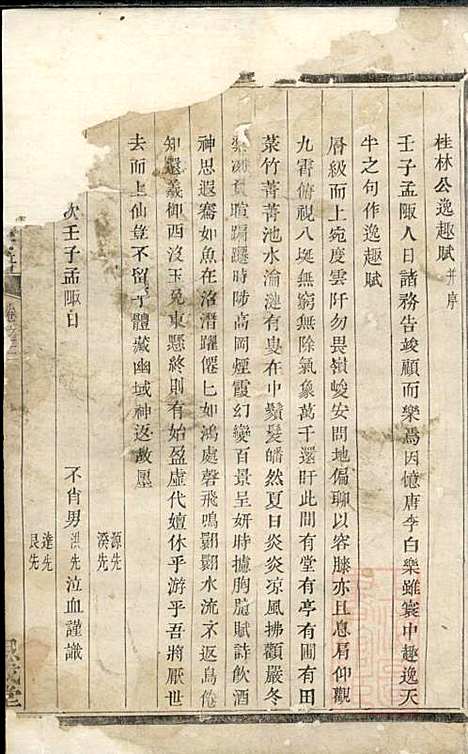 桂林公逸趣賦并序
壬子孟陬人日諸務告竣顧而樂焉因憶唐李白樂雖寰中趣逸天
牛之句作逸趣賦
層級而上宛度雲阡勿畏嶺峻安問地偏聊以容膝亦且息肩仰觀
九霄俯視八埏無窮無除氣象萬千還盱此間有堂有亭有圃有田
菜竹菁菁池水淪漣有叟在中鬚髮皤然夏日炎炎凉風拂顴嚴冬
暄蹋躚時陟高岡煙霞幻變百景呈妍時攄胸臆賦詩飲酒
神思遐騫如魚在沼潛躍僊僊如鴻處磬飛鳴鸜鸜水流不返鳥倦
知還羲御西沒玉兔東懸終則有始盈虛代嬗休乎游乎吾將厭世
去而上仙豈不留兮體藏幽域神返故壥
次壬子孟陬日
不肖男
源先
湙先
洪先
達先
艮先
泣血謹識